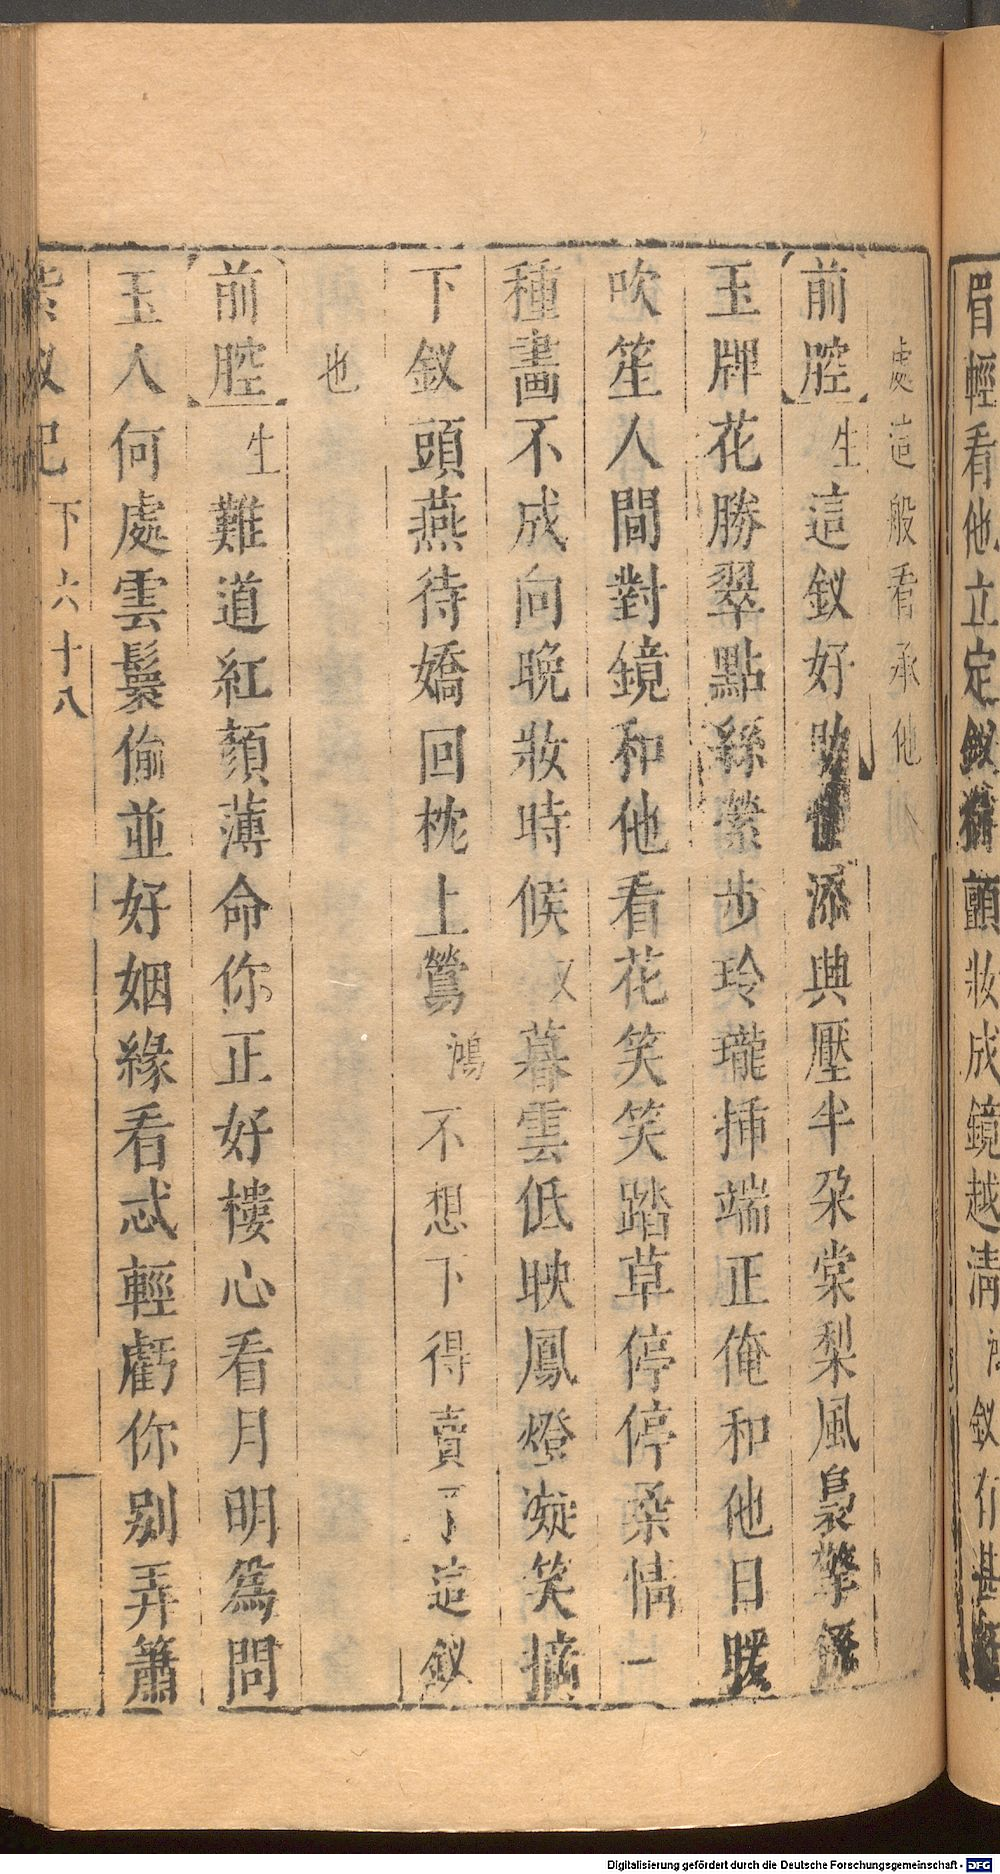 眉輕看他立定釵 顫妝成鏡越清 釵有甚
處這般看承他
前腔 生 這釵好 添典壓半朶棠梨風裊擎
玉牌花勝翠點絲縈步玲瓏揷端正俺和他日暖
吹笙人間對鏡和他看花笑笑踏草停停柔情一
種畵不成向晚妝時候 又 暮雲低映鳳燈凝笑摘
下釵頭燕待嬌回枕上鶯 鴻 不想下得賣了這釵
也
前腔 生 難道紅顏薄命你正好樓心看月明爲問
玉人何處雲鬟偷並好姻緣看忒輕虧你别弄簫
紫釵記 下 六十八
Digitalisierung gefördert durch die Deutsche Forschungsgemeinschaft - DFG